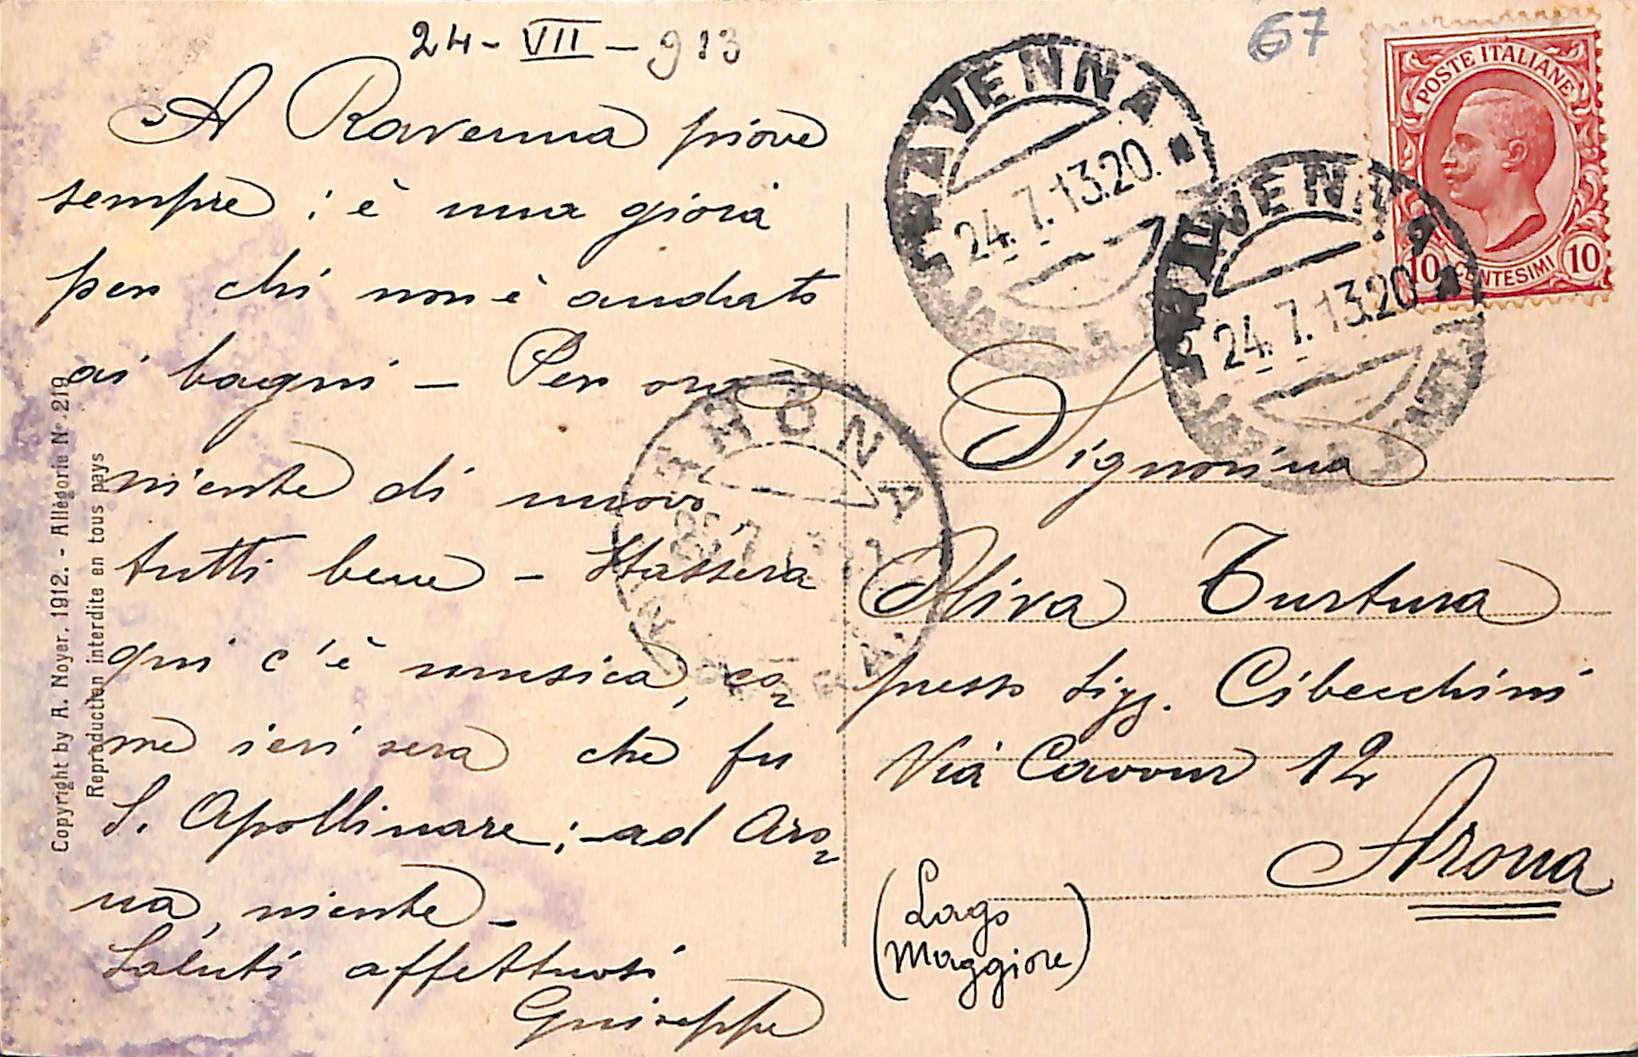 24-VII-913
A Ravenna piove
sempre; è una gioia
per chi non è andato
ai bagni — Per ora
niente di nuovo,
tutti bene — Stassera
qui c'è musica, co=
me ieri sera che fu
S. Apollinare; ad Aro=
na, niente —
Saluti affettuosi
Giuseppe
Copyright by A. Noyer, 1912. - Allégorie N° 219
Reproduction interdite en tous pays
67
POSTE ITALIANE
10 CENTESIMI 10
RAVENNA
24.7.13.20
RAVENNA
24.7.13.20
ARONA
Signorina
Turtura
presso Sigg. Cibecchini
Via Cavour 12
Arona
(Lago
Maggiore)